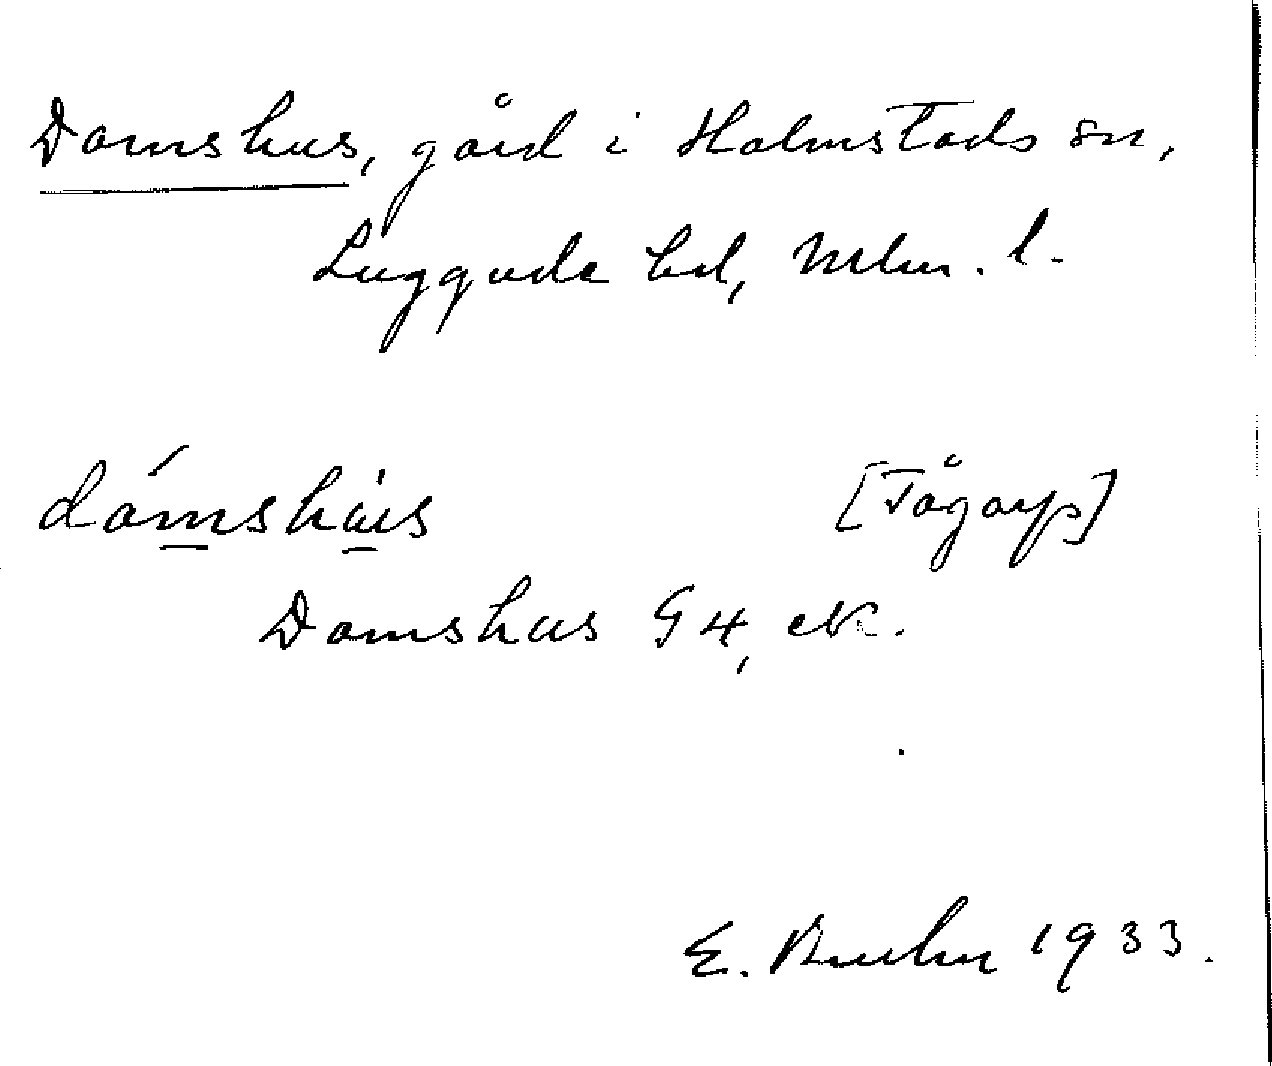 Domshus, gård i Halmstads sn,
Luggude hd, Mlm. l.
dómshus [Tågarp]
Domshus G4, eK.
E. Bruhn 1933.